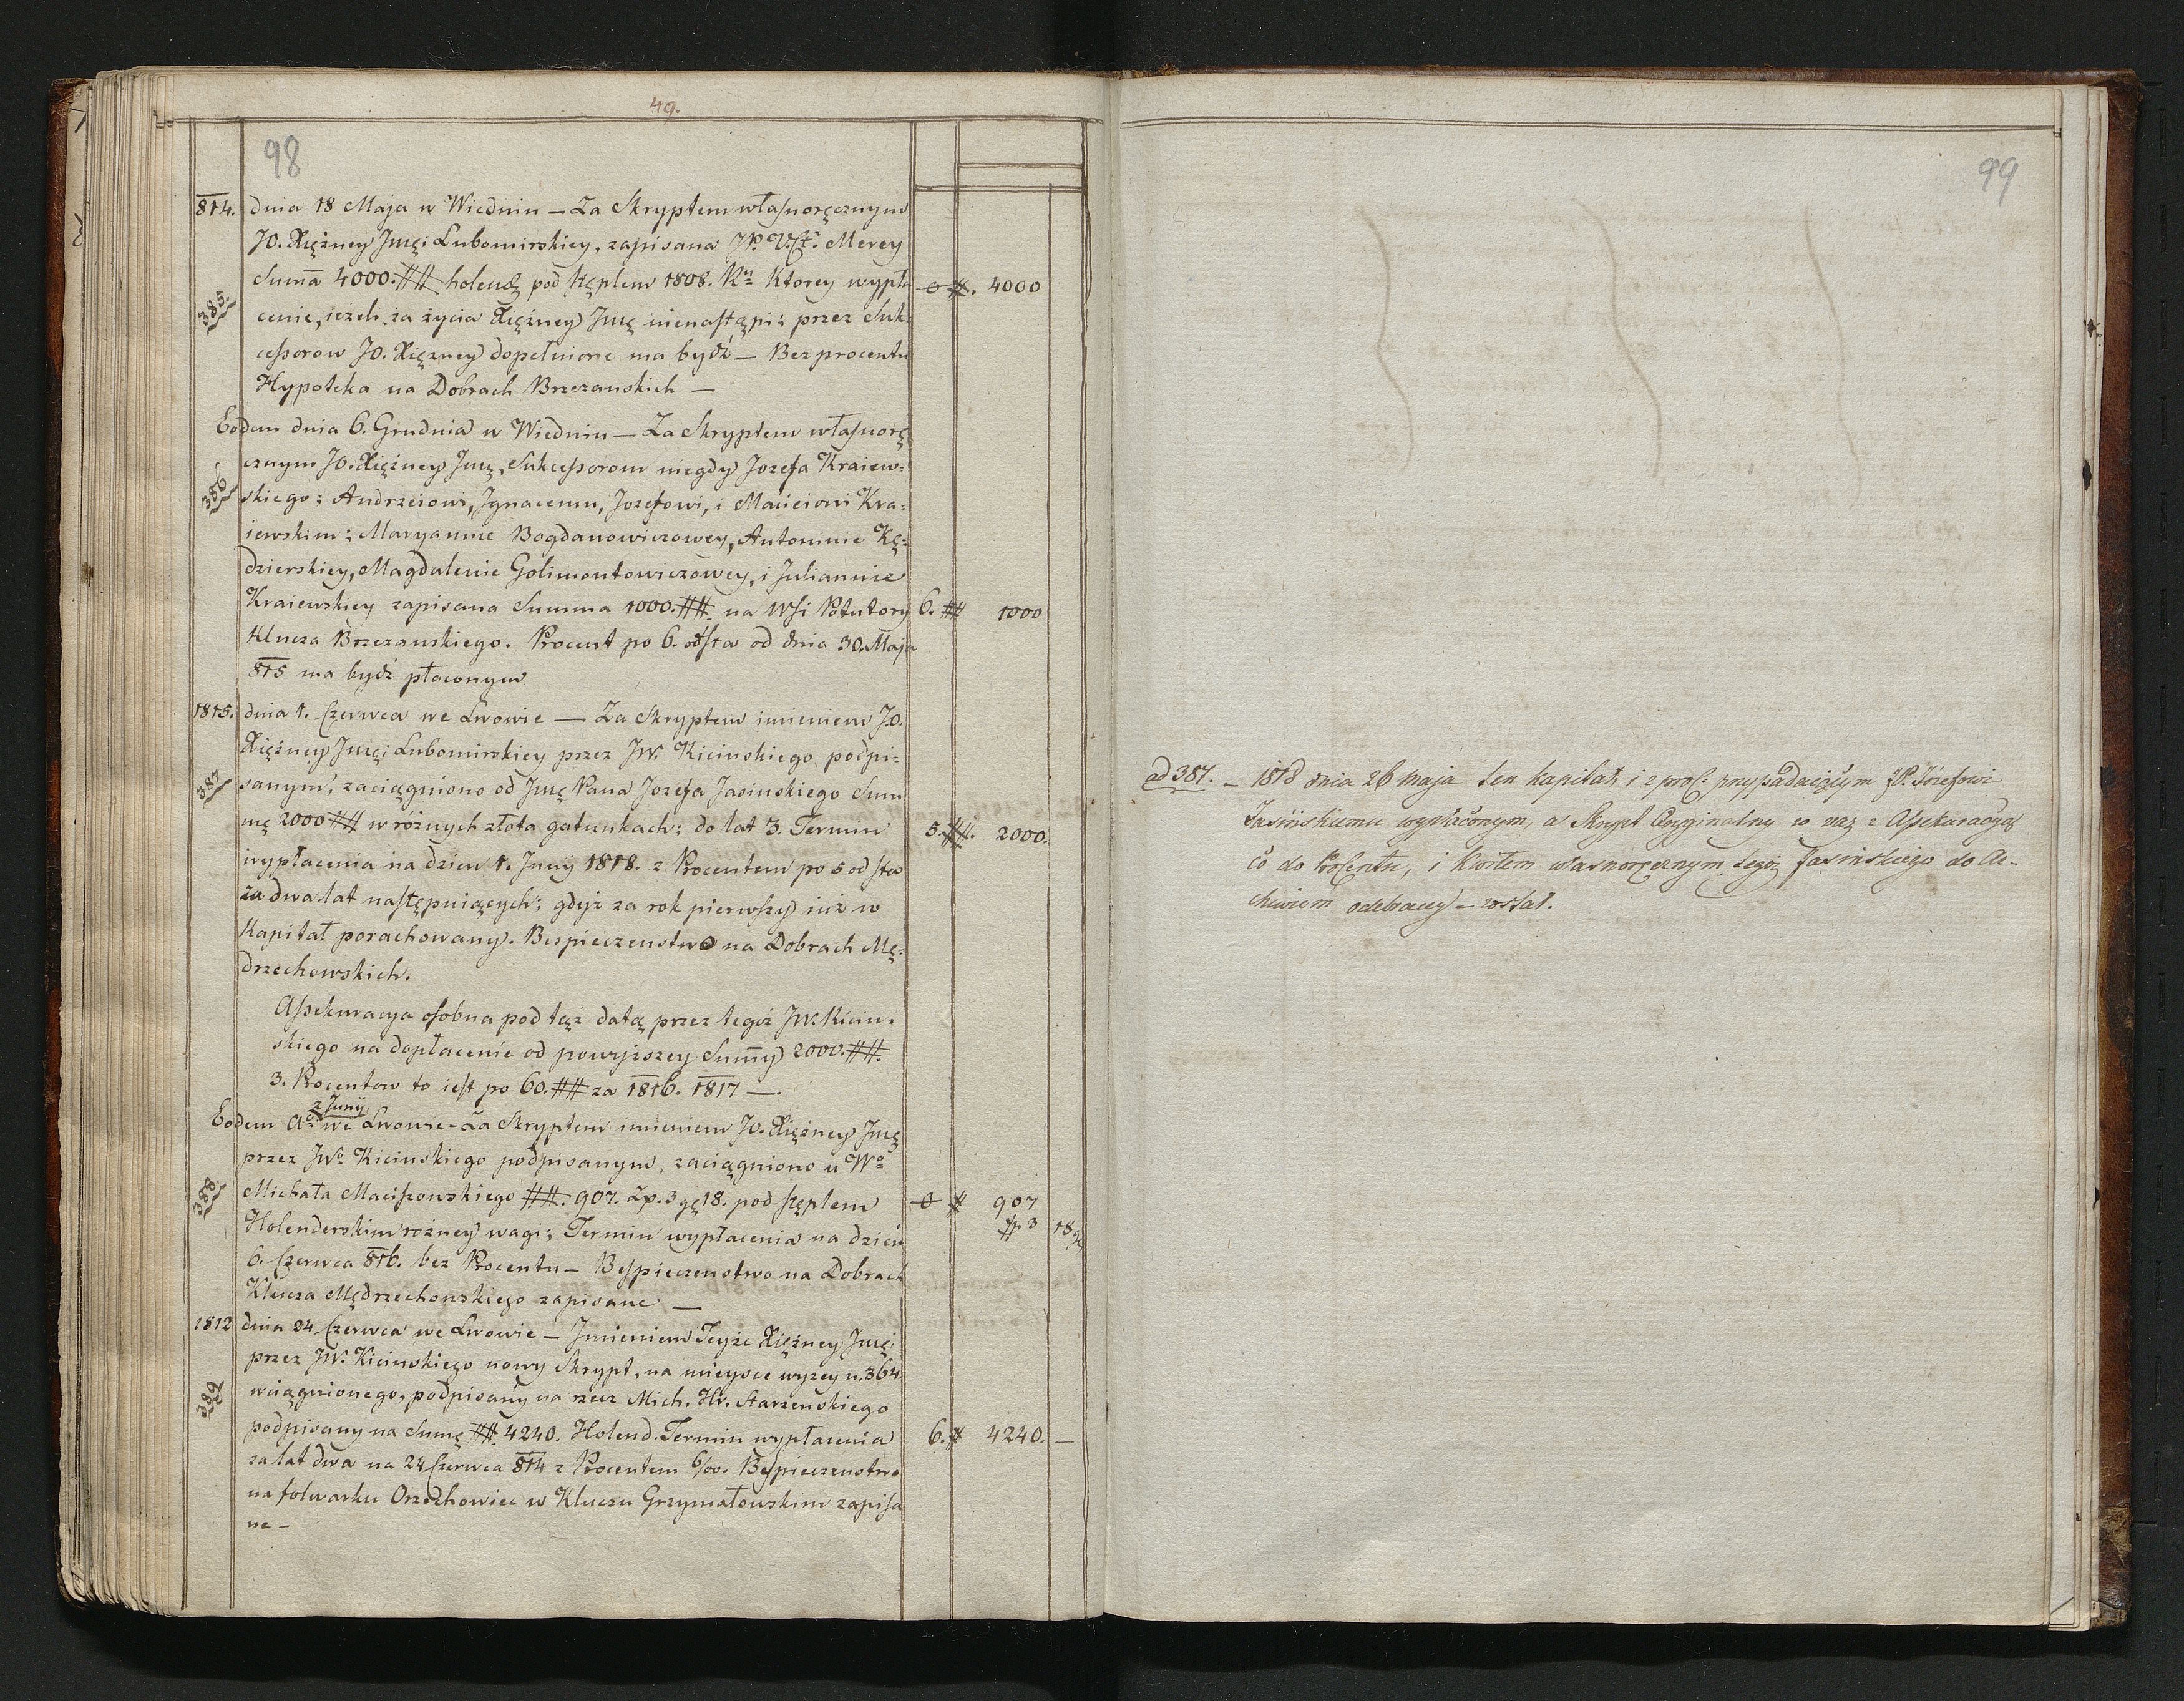 49.
98
814. dnia 18 Maja w Wiedniu — Za Skryptem własnoręcznym
JO. Xiężney Jmci Lubomirskiey, zapisana JP. Mercy
Summa 4000.## holend pod stęplem 1808. Rn Ktorey wypła o #. 4000
385.
cenie, ieżeli za życia Xiężney Jmc nienastąpi: przez Suk-
cessorow JO. Xięzney dopełnione ma bydź — Bez procentu
Hypoteka na Dobrach Brzezanskich —
Eodem dnia 6. Grudnia w Wiedniu — Za Skryptem własnorę
cznym JO. Xiężney Jmc, Sukcessorom niegdy Jozefa Kraiew=
386
skiego: Andrzeiowi, Ignacemu, Jozefowi, i Macieiowi Kra=
iewskim: Maryannie Bogdanowiczowey, Antoninie Kę=
dzierskiey, Magdalenie Golimontowiczowey, i Juliannie
Kraiewskiey zapisana Summa 1000.## na Wsi Potutory 6. ## 1000
Klucza Brzezanskiego. Procent po 6. odsta od dnia 30. Maja
815 ma bydź płaconym
1815. dnia 1. Czerwca we Lwowie — Za Skryptem imieniem J.O.
Xiężney Jmci Lubomirskiey przez JW. Kicinskiego podpi=
387
sanym, zaciągniono od Jmc Pana Jozefa Jasinskiego Sum
mę 2000 ## w różnych złota gatunkach: do lat 3. Termin 5. ##. 2000.
wypłacenia na dzien 1. Juny 1818. z Procentem po 5 od sta
za dwa lat następuiących: gdyż za rok pierwszy iuż w
Kapitał porachowany. Bespieczenstwo na Dobrach Mę=
drzechowskich.
Assekuracya osobna pod tąż datą przez tegoż JW. Kicin-
skiego na dopłacenie od powyższey Summy 2000.##.
3. Procentow to iest po 60.## za 1816. 1817 —.
2 Junij
Eodem Ao we Lwowie — Za Skryptem imieniem JO. Xiężney Jmc
przez JWo Kicinskiego podpisanym, zaciągniono u Wo
388.
Michała Maciszowskiego ##. 907. Zp. 3 gr 18. pod stęplem o # 907
Holenderskim rożney wagi; Termin wypłacenia na dzień fp 3 18 gr
6. Czerwca 816. bez Procentu — Bespieczenstwo na Dobrach
Klucza Mędrzechowskiego zapisane —
1812 dnia 24 Czerwca we Lwowie — Jmieniem Teyże Xiężney Jmci
przez JW. Kicinskiego nowy Skrypt, na mieysce wyzey n. 364
389
wciągnionego, podpisany na rzecz Mich. Hr. Starzenskiego
podpisany na Sumę ##. 4240. Holend. Termin wypłacenia 6. # 4240. —
za lat dwa na 24 Czerwca 814 z Procentem 6/oo. Bespieczenstwo
na folwarku Orzechowiec w Kluczu Grzymałowskim zapisa
ne —
99
ad 387. — 1818 dnia 26 Maja ten kapitał i z proc. przypadaiącym JP. Józefowi
Jasińskiemu wypłaconym, a Skrypt Oryginalny wraz z Assekuracyą
co do Procentu, i kwitem własnoręcznym tegoż Jasinskiego do Ar-
chiwum odebrany — został.